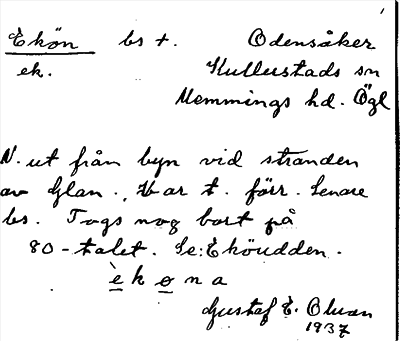 Ekön bs t. Odensåker
ek. Kullerstads sn
Memmings hd. Ögl
N. ut från byn vid stranden
av Glan. Var t. förr. Senare
bs. Togs nog bort på
80-talet. Se: Eköudden.
èkøna
Gustaf E. Olsson
1937